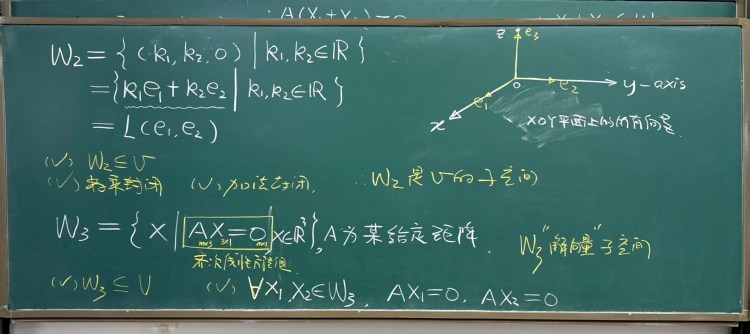 A(X₁+X₂)=0
W₂ = { (k₁, k₂, 0) | k₁, k₂∈ℝ }
= { k₁e₁ + k₂e₂ | k₁, k₂∈ℝ }
= L(e₁, e₂)
z e₃
o e₂ y-axis
e₁
x
XOY平面上的所有向量
(√) W₂ ⊆ V
(√) 数乘封闭 (√) 加法封闭. ∴ W₂是V的子空间
W₃ = { X | AX=0, X∈ℝ³ }, A为某给定矩阵.
m×3 3×1 m×1
齐次线性方程组
W₃ "解向量"子空间
(√) W₃ ⊆ V (√) ∀X₁, X₂∈W₃, AX₁=0, AX₂=0